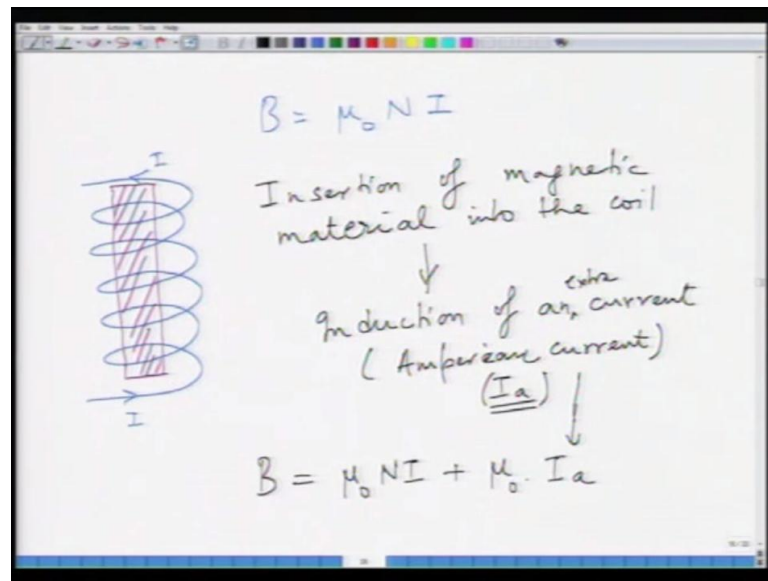 B = μ₀ N I
I
Insertion of magnetic
material into the coil
extra
Induction of an, current
(Amperean current)
(Ia)
I
B = μ₀ NI + μ₀. Ia